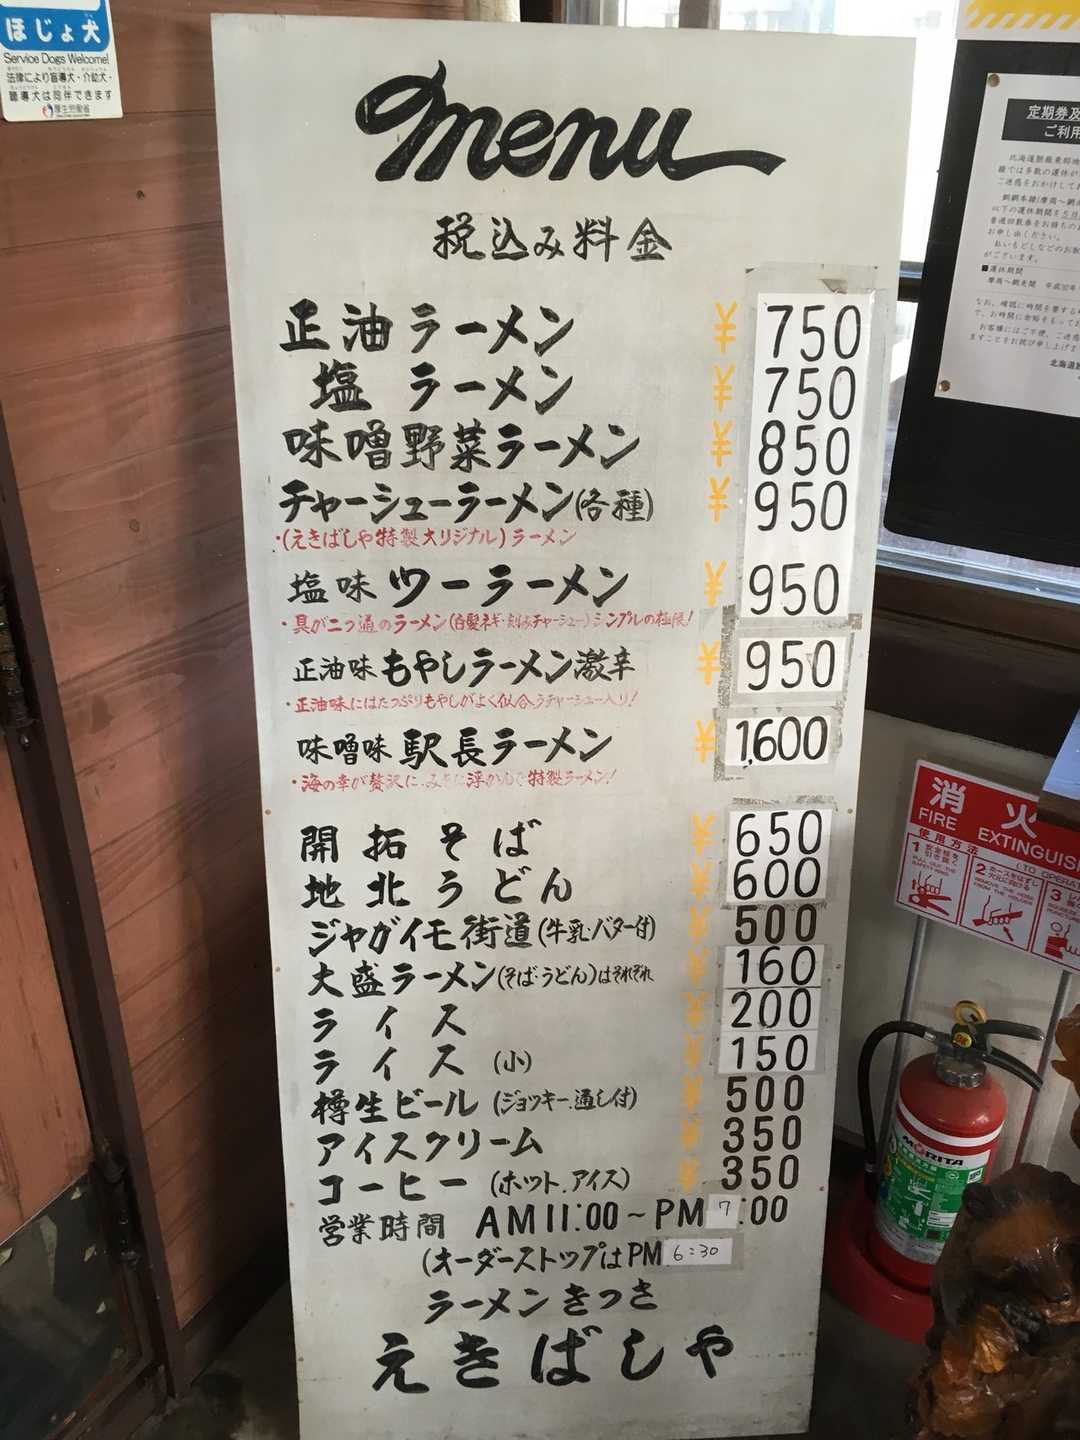 ほじょ犬
Service Dogs Welcome!
法律により盲導犬・介助犬・
聴導犬は同伴できます
厚生労働省
menu
税込み料金
正油ラーメン ¥750
塩ラーメン ¥750
味噌野菜ラーメン ¥850
チャーシューラーメン(各種) ¥950
・(えきばしや特製オリジナル)ラーメン
塩味ツーラーメン ¥950
・具が二つ通のラーメン(白髪ネギ・刻みチャーシュー)シンプルの極限!
正油味もやしラーメン激辛 ¥950
・正油味にはたっぷりもやしがよく似合うチャーシュー入り!
味噌味駅長ラーメン ¥1,600
・海の幸が贅沢に、みそに浮かんで特製ラーメン!
開拓そば ¥650
地北うどん ¥600
ジャガイモ街道(牛乳・バター付) ¥500
大盛ラーメン(そば・うどん)はそれぞれ ¥160
ライス ¥200
ライス(小) ¥150
樽生ビール(ジョッキー、通し付) ¥500
アイスクリーム ¥350
コーヒー(ホット、アイス) ¥350
営業時間 AM11:00～PM7:00
(オーダーストップはPM6:30
ラーメンきっさ
えきばしや
定期券及
ご利用
■運休期間
消火
FIRE EXTINGUIS
使用方法
(TO OPERA
1 安全栓を引き抜く
2 ホースをはずし火元に向ける
3
MORITA